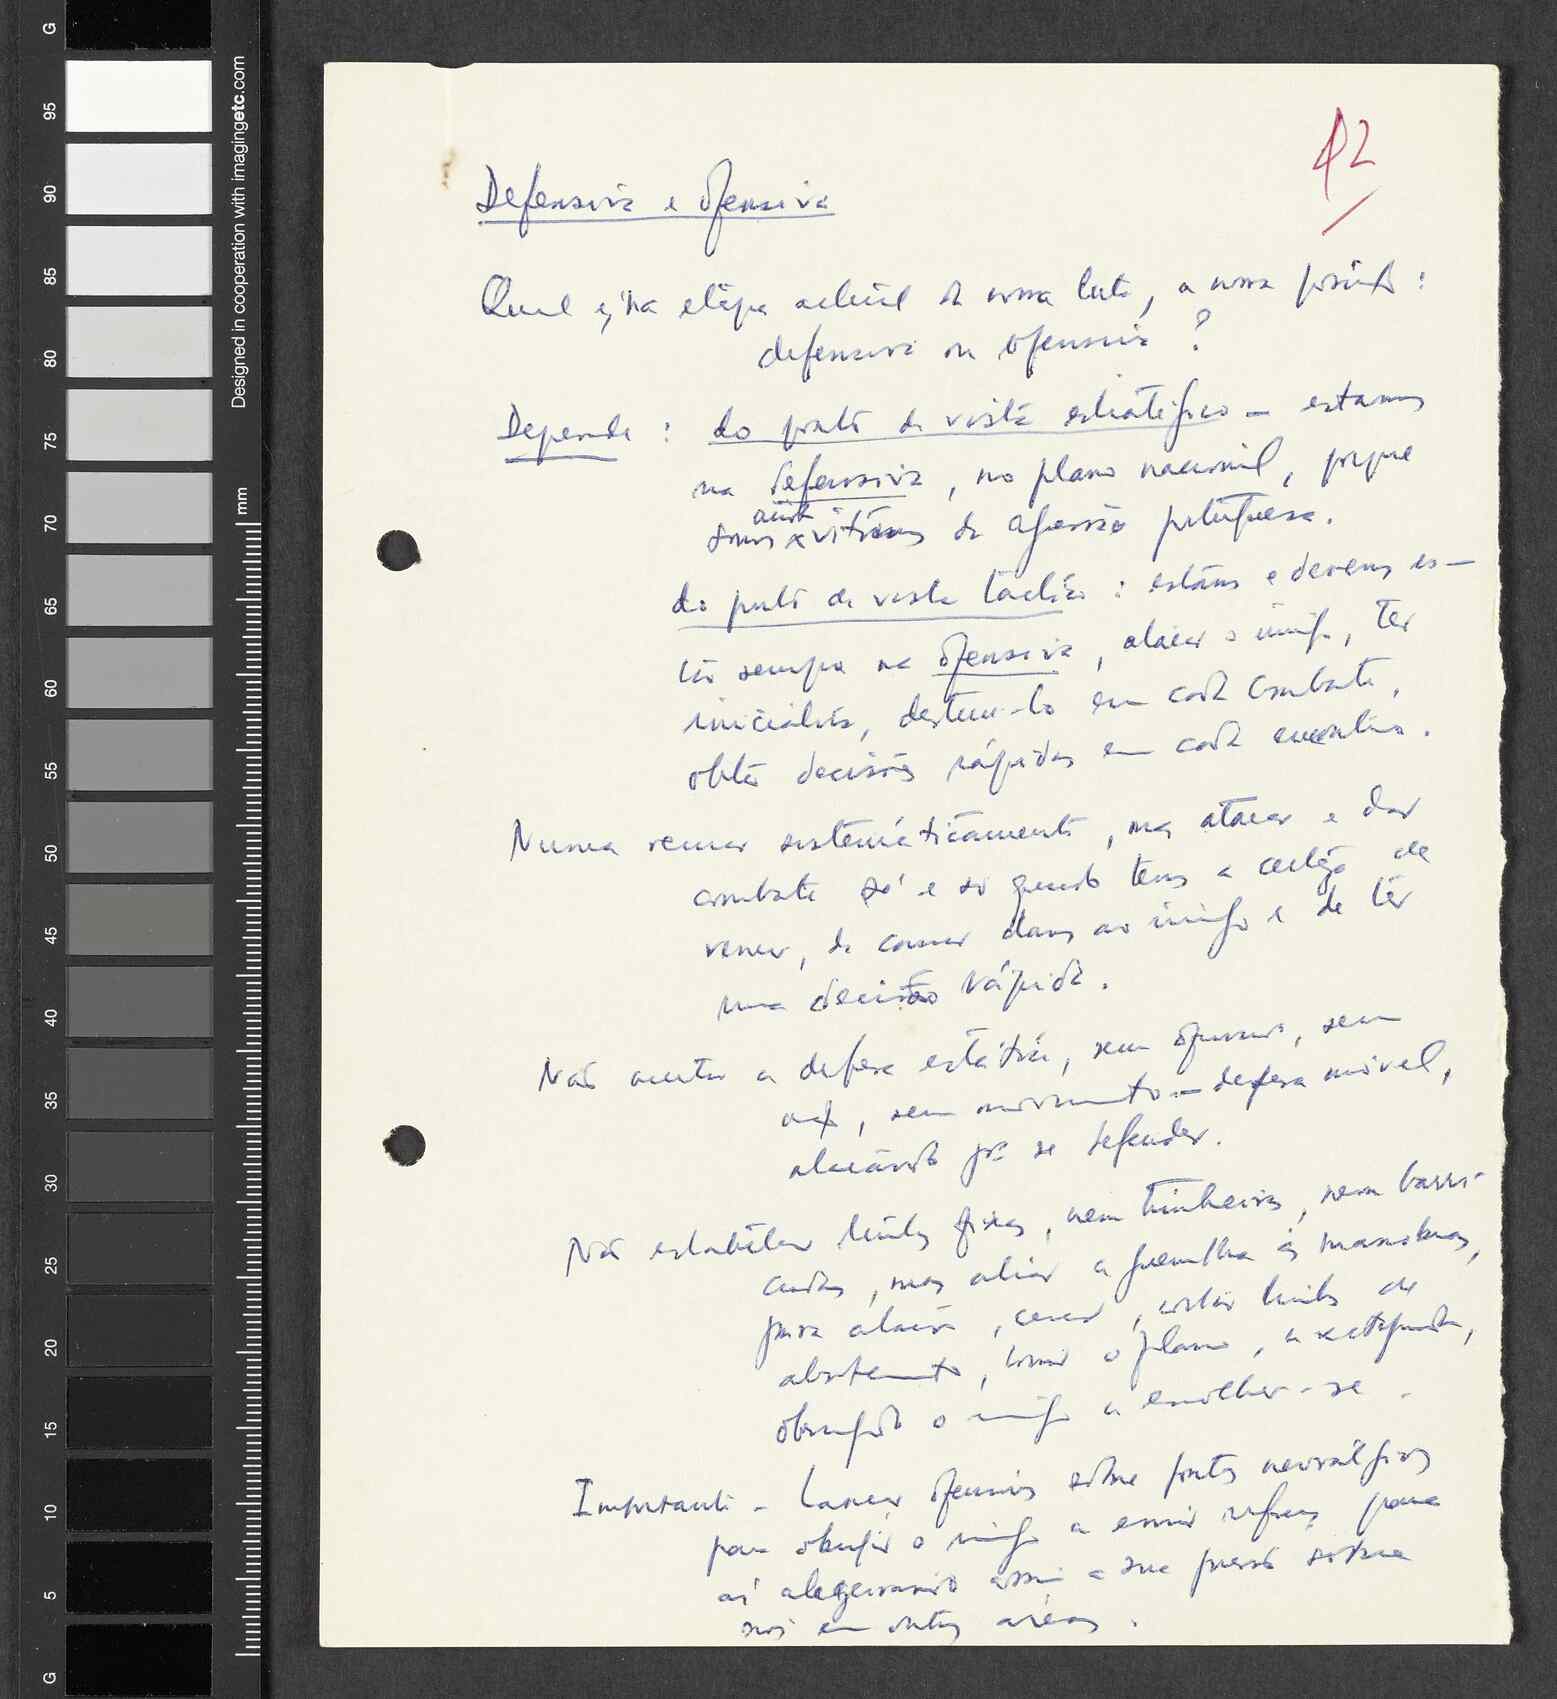 42
Defensiva e ofensiva
Qual é, na etapa actual da nossa luta, a nossa posição:
defensiva ou ofensiva?
Depende: do ponto de vista estratégico — estamos
na defensiva, no plano nacional, porque
somos ainda vítimas da agressão portuguesa.
do ponto de vista táctico: estamos e devemos es-
tar sempre na ofensiva, atacar o inimigo, ter
iniciativa, destruí-lo em cada combate,
obter decisões rápidas em cada encontro.
Nunca recuar sistemáticamente, mas atacar e dar
combate só e só quando temos a certeza de
vencer, de causar danos ao inimigo e de ter
uma decisão rápida.
Não aceitar a defesa estática, sem ofensiva, sem
acção, sem movimento — defesa móvel,
atacando para se defender.
Não estabelecer linhas fixas, nem trincheiras, nem barri-
cadas, mas aliar a guerrilha às manobras,
para atacar, cercar, cortar linhas de
abastecimento, tomar o flanco, a rectaguarda,
obrigando o inimigo a encolher-se.
Importante — Lançar ofensivas sobre pontos nevrálgicos
para obrigar o inimigo a enviar reforços para
aí alegeirando assim a sua pressão sobre
nós em outras áreas.
Designed in cooperation with imagingetc.com
mm
G
95
90
85
80
75
70
65
60
55
50
45
40
35
30
25
20
15
10
5
G